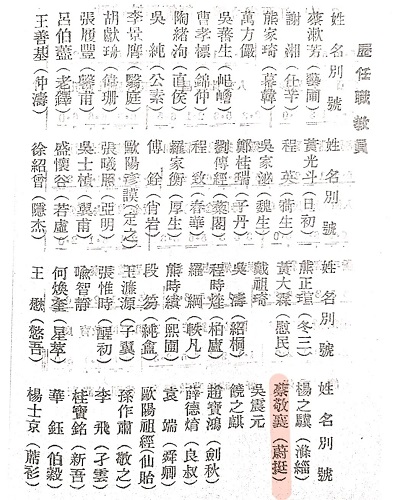 歷任職教員
姓名別號
蔡漱芳(藝圃)
謝湘(任辛)
熊家琦(慕韓)
萬方儼
吳蕃生
曹孝標(錦仲)
陶緒洵(直侯)
吳純(公素)
李景膺
胡獻璜(偉珊)
張履豐(馨甫)
呂伯藎(老鐸)
王善基(仲濤)
姓名別號
黃光斗(日初)
程英(蒨生)
吳家泌(魏生)
鄭桂瑞(子丹)
劉傳經(藥閣)
程(春華)
羅家衡(厚生)
傅銓(肖岩)
歐陽彥謨(定之)
張曦照(亞明)
吳士楨(翼甫)
盛懷谷(若虛)
徐紹曾(隱杰)
姓名別號
熊正瑾(冬三)
黃大霖(慰民)
戴祖琦
吳濤(紹桐)
程時煃(柏廬)
羅綱(軼凡)
熊時縯(熙園)
段芴(純盦)
王濂源(子翼)
張惟時(醒初)
喻智靜
何煥奎(星萃)
王懋(慜吾)
姓名別號
楊之驥(滌緇)
蔡敬襄(蔚挺)
吳震元
饒之麒
趙寶鴻(劍秋)
薛德焴(良叔)
袁端(舜卿)
歐陽祖經(仙貽)
孫作肅(敬之)
李飛(孑雲)
桂寶銘(新吾)
華鈺(伯毅)
楊士京(蔗衫)